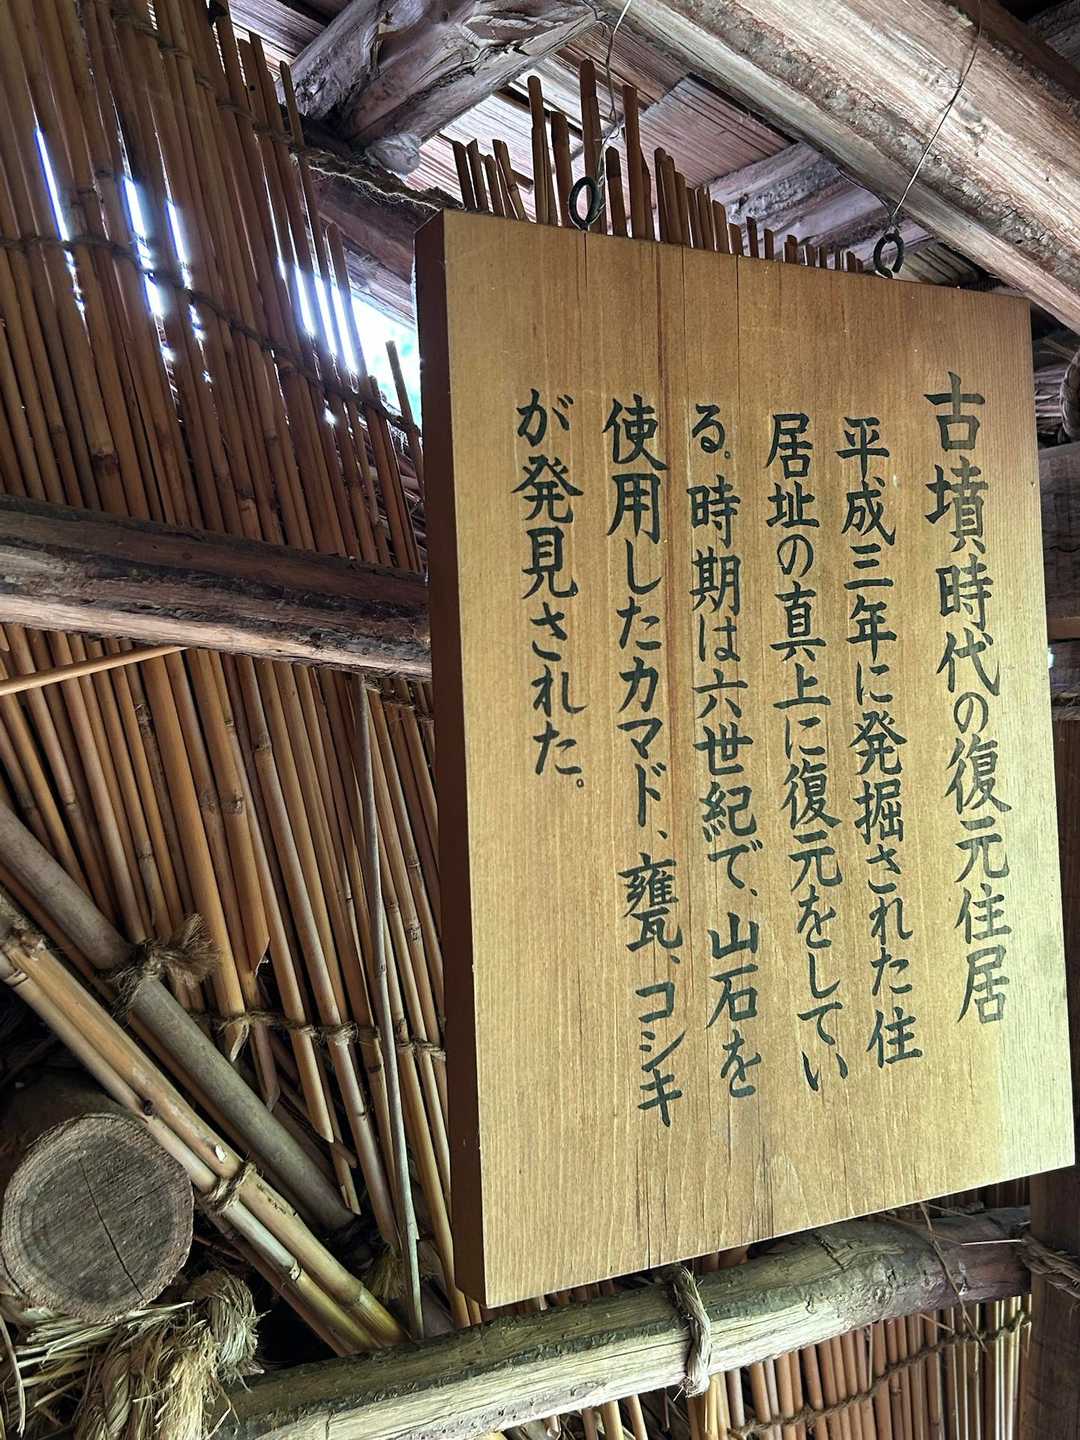 古墳時代の復元住居
平成三年に発掘された住
居址の真上に復元をしてい
る。時期は六世紀で、山石を
使用したカマド、甕、コシキ
が発見された。